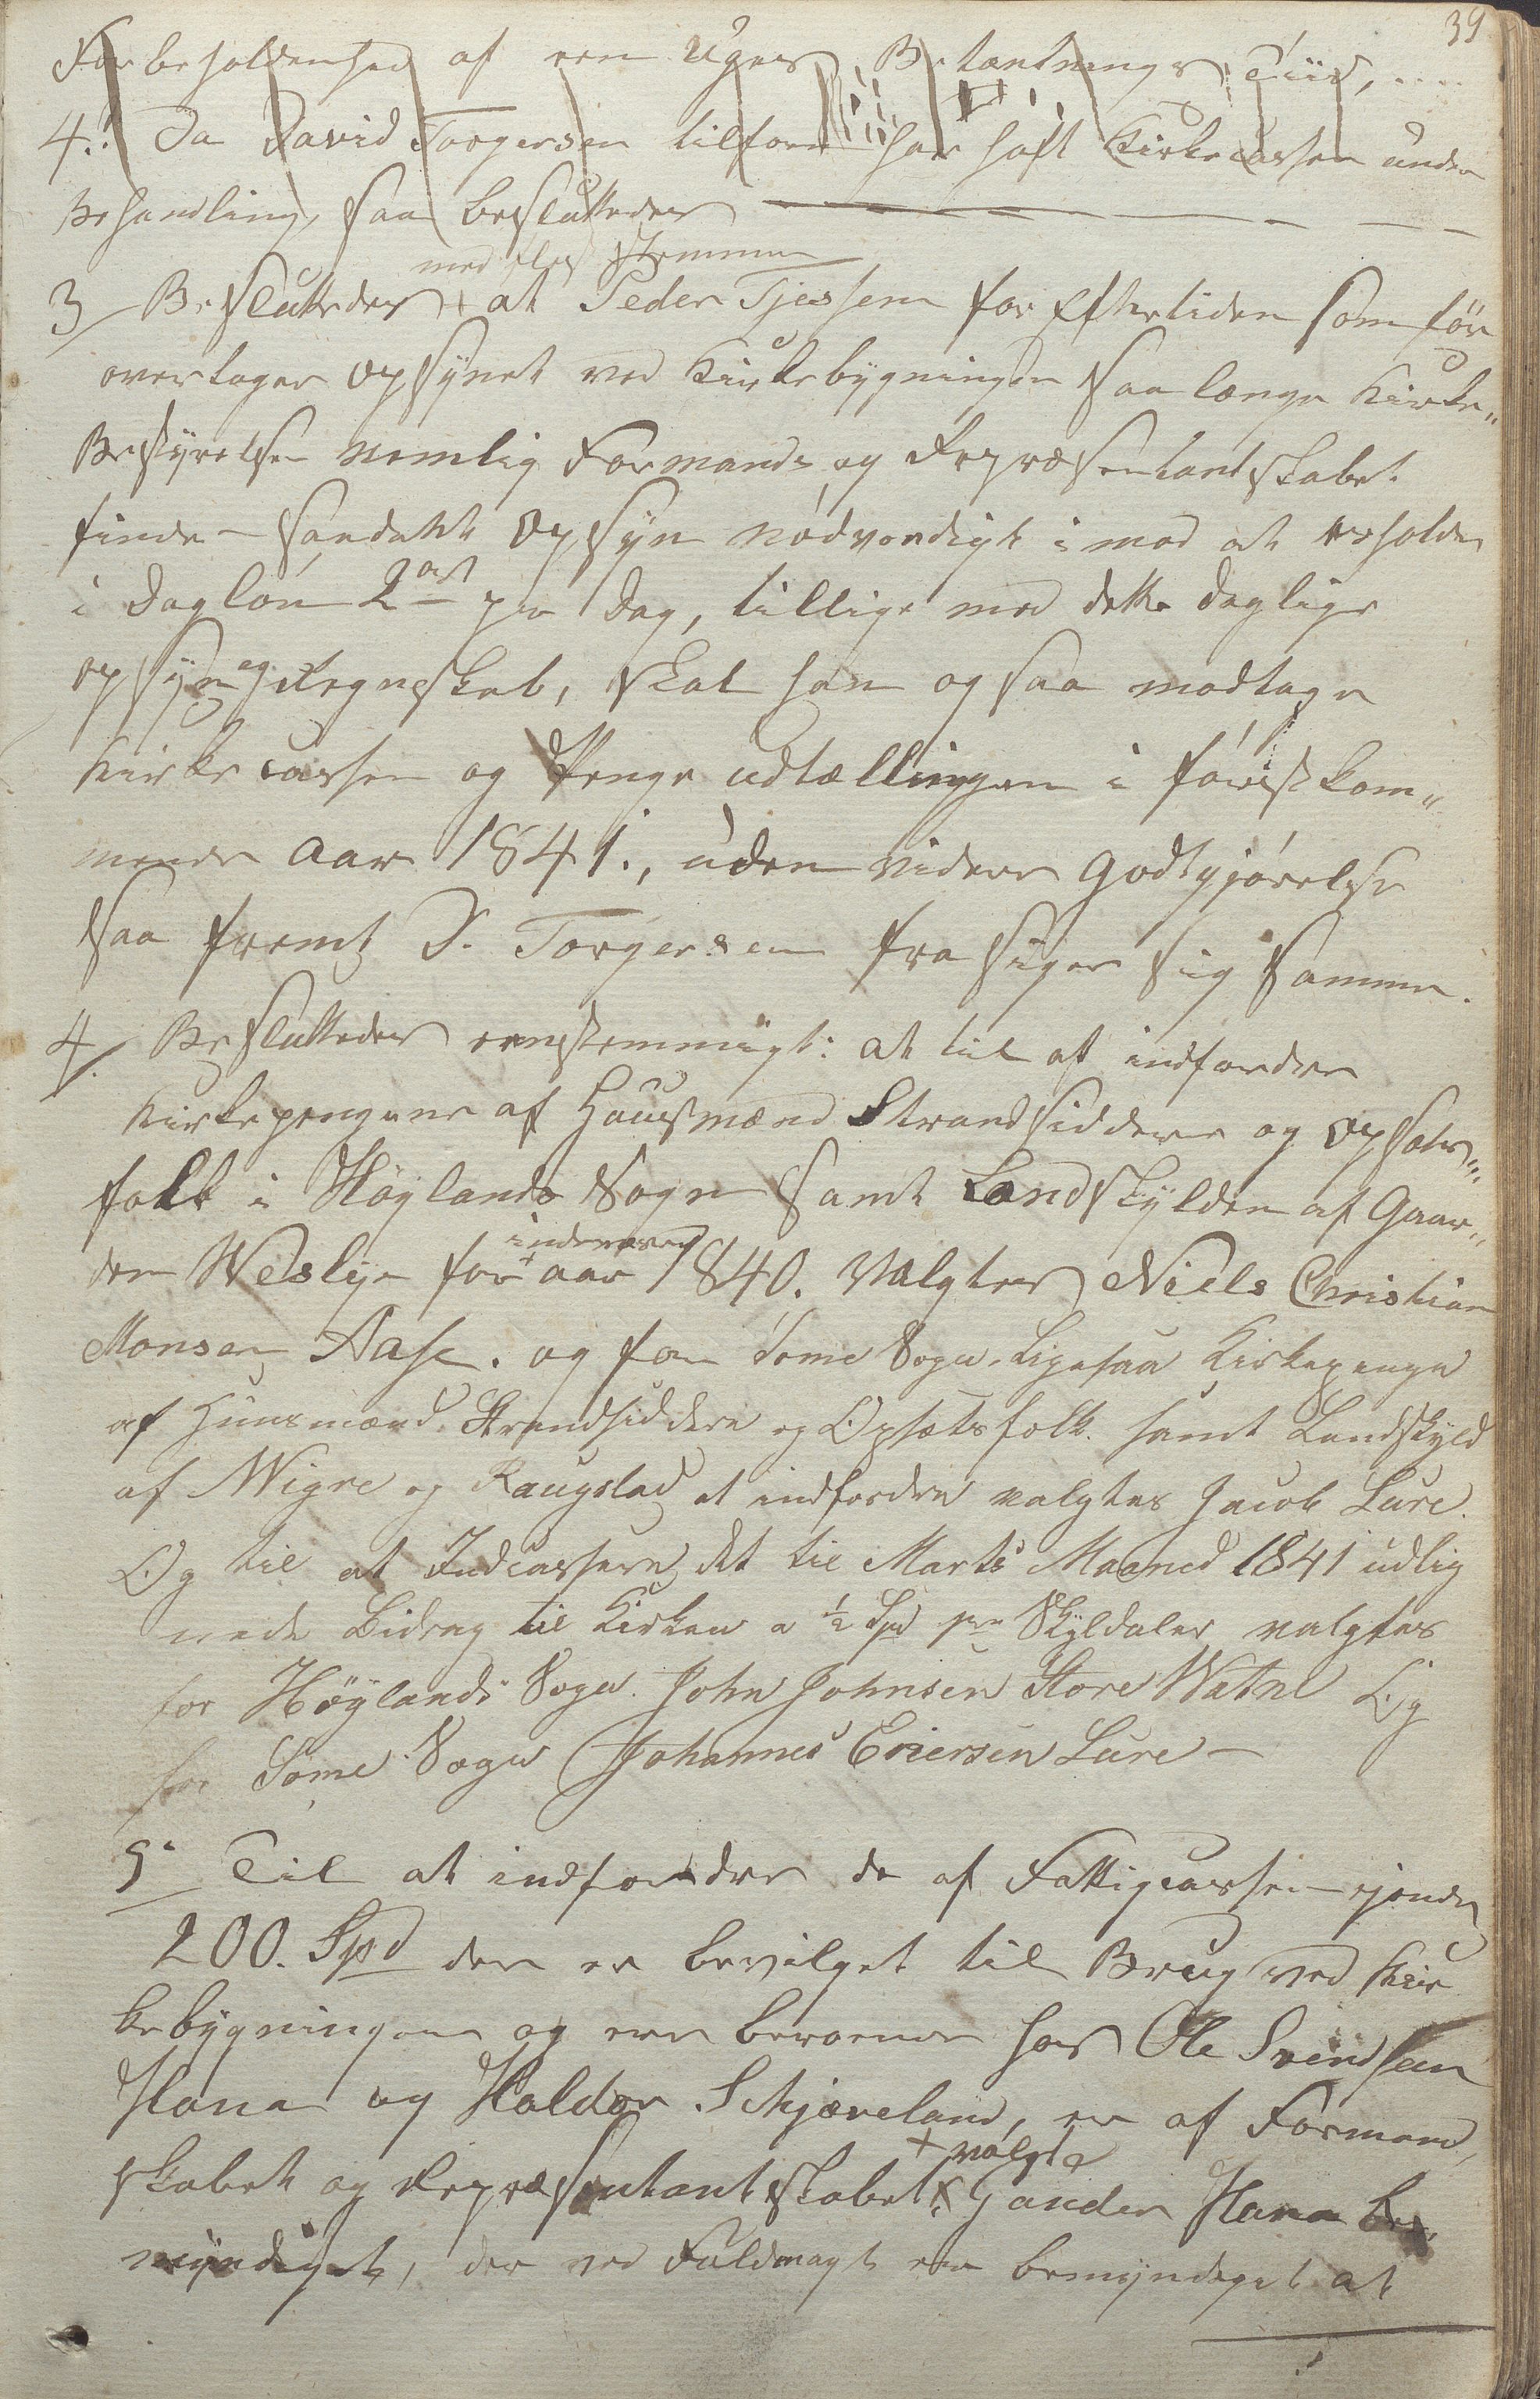 39
Forbeholdenhed af een Uges Betænknings Tiid, ....
4.: Da David Torgersen tilforn har haft Kirkecassen under
Behandling, saa besluttedes
med flest Stemmer
3 Besluttedes + at Peder Tjessem for Eftertiden som før
overtager Opsynet ved Kirkebygningen saa længe Kirke„
Bestyrelsen nemlig Formands og Repræsentantskabet
finde saadant Opsyn nødvendigt imod at erholde
i Dagløn 2 ort pr Dag, tillige med dette daglige
opsyn og Regneskab, skal han ogsaa modtage
Kirkecassen og Penge udtællingen i førstkom„
mende Aar 1841., uden videre Godtgjørelse
saa fremt D. Torgersen frasiger sig samme.
4. Besluttedes eenstemmigt: at til at indfordre
Kirkepengene af Huusmænd Strandsiddere og Opsæts„
folk i Høylands Sogn samt Landskylden af Gaar„
den Weslye for indeværend aar 1840. valgtes Niels Christian
Monsen Aase. og for Some Sogn ligesaa Kirkepenge
af Huusmænd Strandsiddere og Opsætsfolk samt Landskyld
af Wigre og Raugstad at indfordre valgtes Jacob Lure.
Og til at Indcassere det til Marts Maaned 1841 udlig
nede Bidrag til Kirken a ½ Spd pr Skyldaler valgtes
for Høylands Sogn John Johnsen Store Watne Og
for Some Sogn Johannes Eriersen Lure –
5 Til at indfordre de af Fattigcassen ejende
200. Spd der er bevilget til Brug ved Kir
kebygningen og ere beroende hos Ole Svendsen
Hana og Haldor Schjæveland, er af Formand„
skabet og Repræsentantskabet + valgt Gander Hana be„
myndiget, der ved Fuldmagt er bemyndeget at